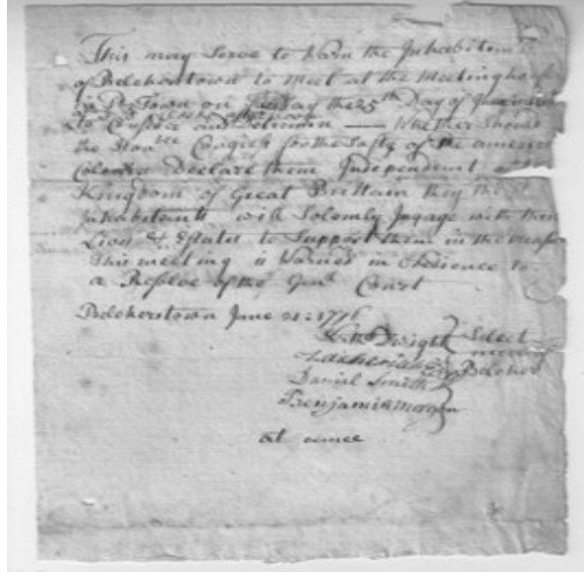 This may Serve to Warn the Inhabitants
of Belcherstown to Meet at the Meetinghouse
in Sd Town on Tuesday the 25th Day of June
to Consider and Determin — Whether Should
the Honble Congress for the Safty of the american
Colonies Declare them Independent of the
Kingdom of Great Brittain they the Sd
Inhabitants will Solemly Ingage with their
Lives & Estates to Support them in the
This meeting is Warned in Obedience to
a Resolve of the Genl Court
Belcherstown June 21: 1776
Dwight Select
men
Belcher
Daniel Smith
Benjamin Morgan